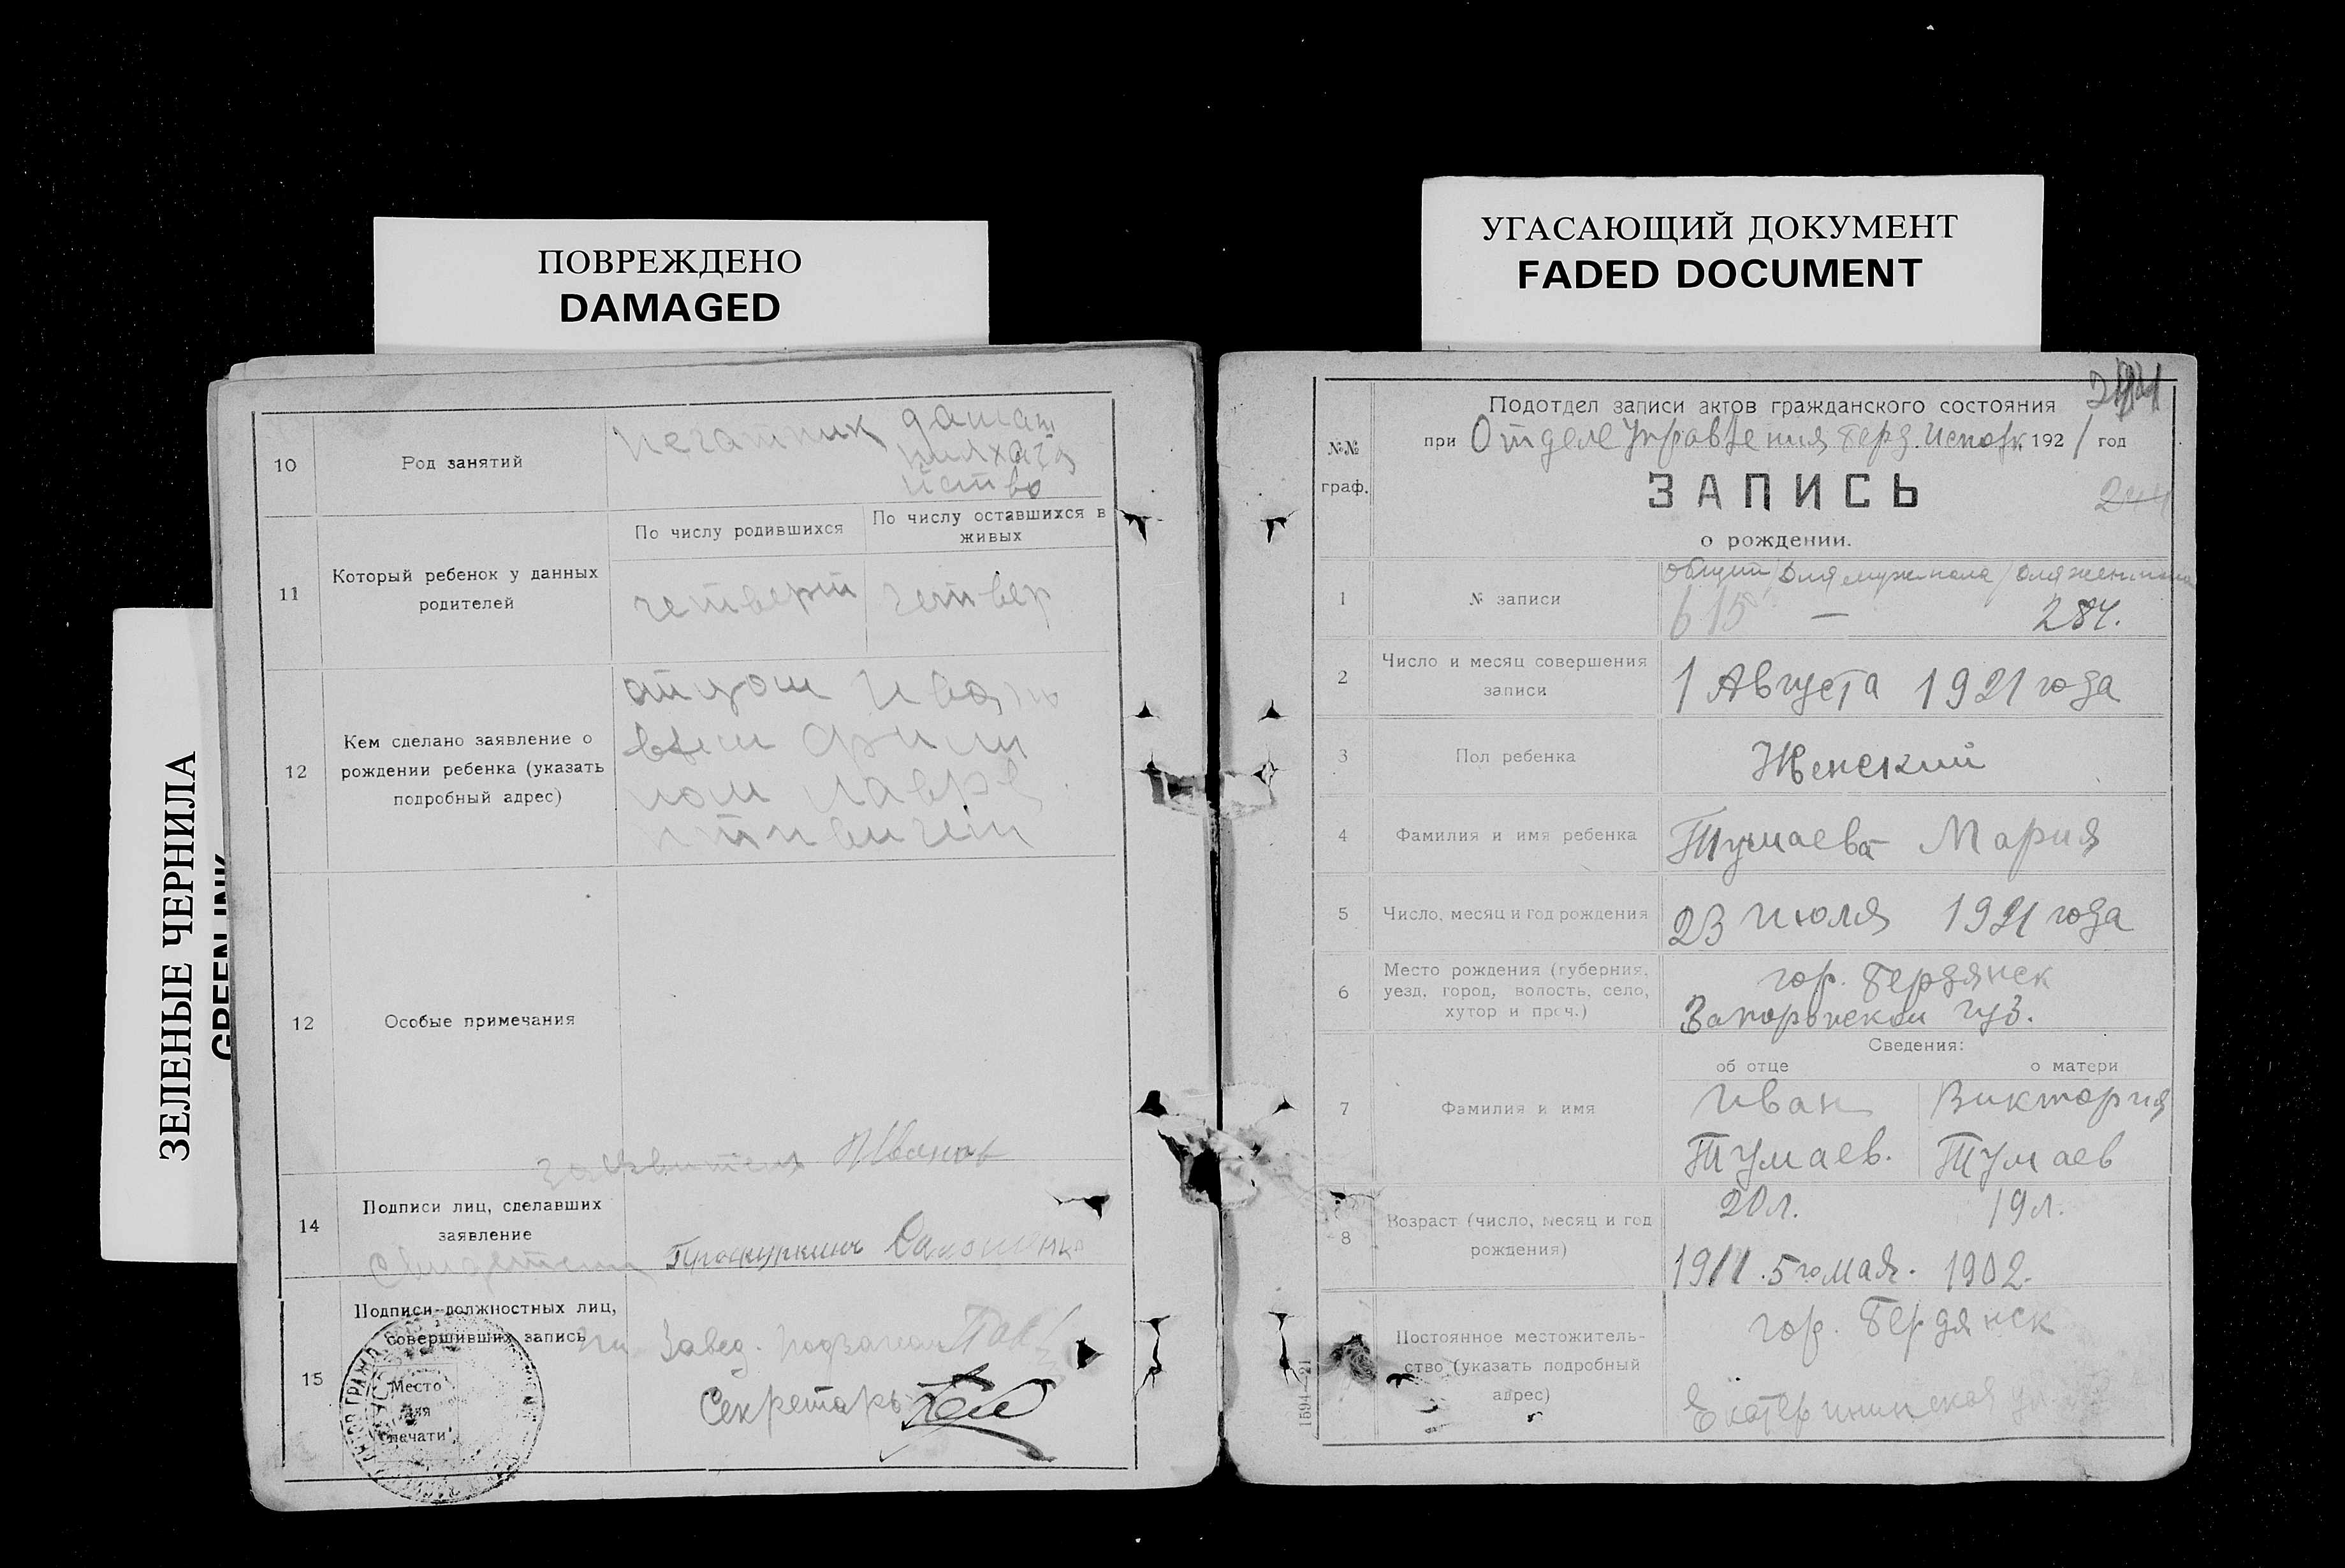 ПОВРЕЖДЕНО
DAMAGED
УГАСАЮЩИЙ ДОКУМЕНТ
FADED DOCUMENT
ЗЕЛЕНЫЕ ЧЕРНИЛА
GREEN INK
10
Род занятий
печатник
11
Который ребенок у данных
родителей
По числу родившихся
По числу оставшихся в
живых
четверт
четвер
12
Кем сделано заявление о
рождении ребенка (указать
подробный адрес)
отцом Ивано
вым
12
Особые примечания
заявитель Иванов
14
Подписи лиц, сделавших
заявление
Свидетели
15
Подписи должностных лиц,
совершивших запись
Завед.
Секретарь
Место
для
печати
№№
граф.
Подотдел записи актов гражданского состояния
при Отделе Управления Берд. Исполк 1921 год
ЗАПИСЬ
244
о рождении.
1
№ записи
Общий / Для муж пола / Для жен пола
615 — 284.
2
Число и месяц совершения
записи
1 Августа 1921 года
3
Пол ребенка
Женский
4
Фамилия и имя ребенка
Тумаева Мария
5
Число, месяц и год рождения
23 июля 1921 года
6
Место рождения (губерния,
уезд, город, волость, село,
хутор и проч.)
гор. Бердянск
Запорожской губ.
Сведения:
об отце
о матери
7
Фамилия и имя
Иван
Тумаев.
Виктория
Тумаев
8
Возраст (число, месяц и год
рождения)
20 л.
19 л.
5 го мая. 1902.
Постоянное местожитель-
ство (указать подробный
адрес)
гор. Бердянск
Екатерининская ул.
1594—21